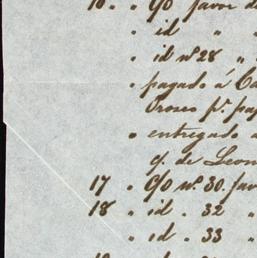 16 " " C/O favor de
" id " "
" id nº 28 " "
" pagado á Ca
Oroses pr. pag
" entregado a
c/. de Leon
17 " C/O nº. 30. fav
18 " id . 32 "
" id . 33 "